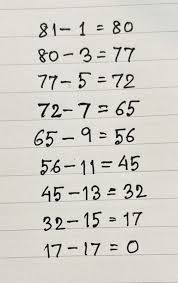 81 - 1 = 80
80 - 3 = 77
77 - 5 = 72
72 - 7 = 65
65 - 9 = 56
56 - 11 = 45
45 - 13 = 32
32 - 15 = 17
17 - 17 = 0